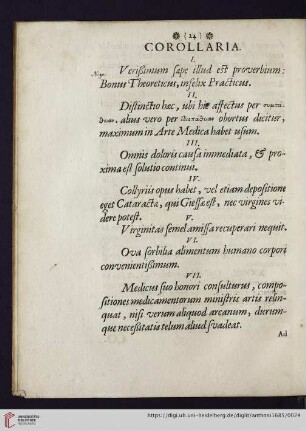 ❁ (24) ❁
COROLLARIA.
I.
Verißimum sæpe illud est proverbium:
Bonus Theoreticus, infelix Practicus.
II.
Distinctio hæc, ubi hic affectus per συμπά-
θειαν, alius vero per ἰδιοπάθειαν obortus dicitur,
maximum in Arte Medica habet usum.
III.
Omnis doloris causa immediata, & pro-
xima est solutio continui.
IV.
Collyriis opus habet, vel etiam depositione
eget Cataracta, qui Giessa est, nec virgines vi-
dere potest.
V.
Virginitas semel amissa recuperari nequit.
VI.
Ova sorbilia alimentum humano corpori
convenientißimum.
VII.
Medicus suo honori consulturus, compo-
sitiones medicamentorum ministris artis relin-
quat, nisi verum aliquod arcanum, durum-
que necessitatis telum aliud svadeat.
Ad
https://digi.ub.uni-heidelberg.de/diglit/